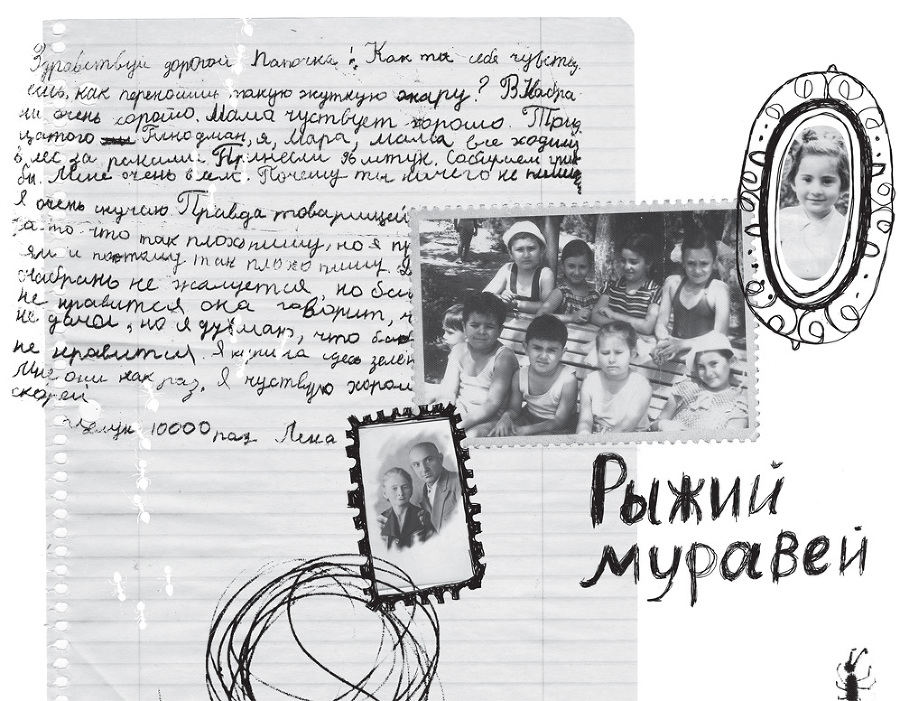 Здравствуй дорогой Папочка! Как ты себе чувству
ешь, как переносишь такую жуткую жару? В
ни очень хорошо. Мама чуствует хорошо. Трид
цатого Гинодман, я, Мара, Малва все ходили
в лес за раками. Принесли 96 штук. Собираем гри
бы. Мне очень Почему ты ничего не пишеш
Я очень скучаю. Правда товарищей
за то что так плохо пишу, но я
ям и поэтому так плохо пишу.
не жалуется, но
не нравится она гаворит,
не дача, но я думаю, что
не нравится. Я купила здесь
Мне они как раз. Я чуствую
скорей
10000 раз Лена
Рыжий
муравей